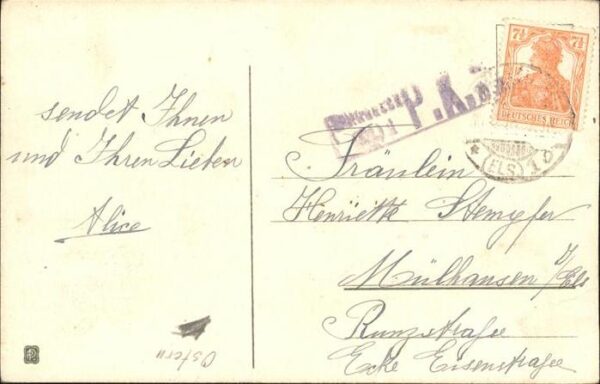 sendet Ihnen
und Ihren Lieben
Alice
Ostern
P.K.
7½ 7½
DEUTSCHES REICH
(ELS)
Fräulein
Henriette Stempfer
Mülhausen i/Els
Runzstraße
Ecke Eisenstraße